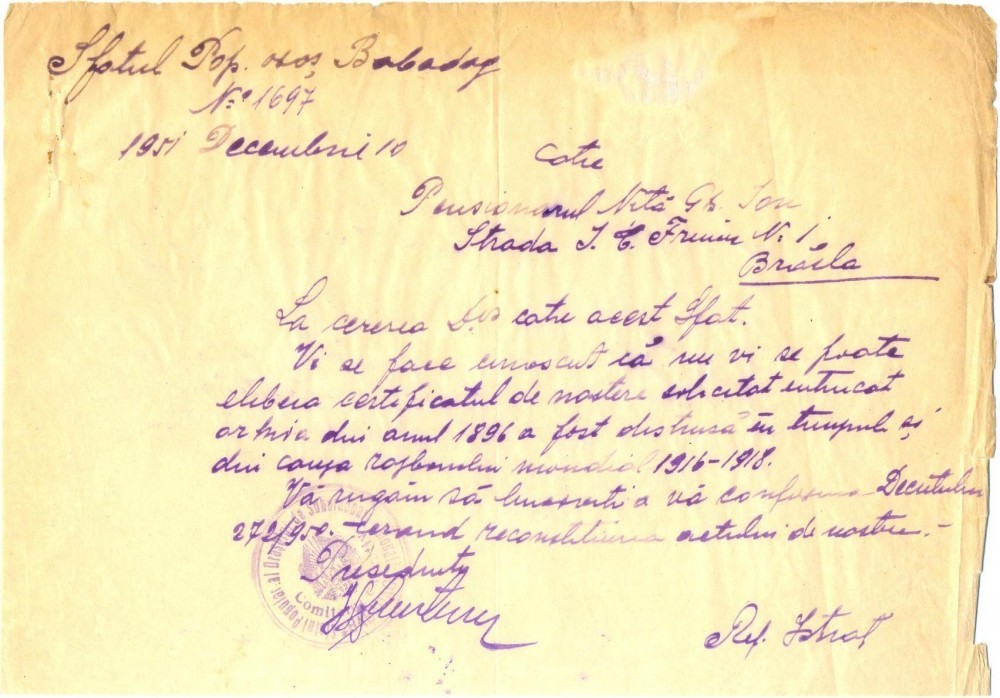 Sfatul Pop. oraș Babadag
No. 1697
1951 Decembrie 10
Catre
Pensionarul Nită Gh. Ion
Strada I. C. Frimu No. 1
Brăila
La cererea Dvs catre acest Sfat.
Vi se face cunoscut că nu vi se poate
elibera certificatul de nastere solicitat intrucat
arhiva din anul 1896 a fost distrusă în timpul și
din cauza rasboiului mondial 1916-1918.
Vă rugăm să binevoiti a vă conforma Decretului
272/950. cerand reconstituirea actului de nastere.-
Președinte
Comit
Ref. Istrat